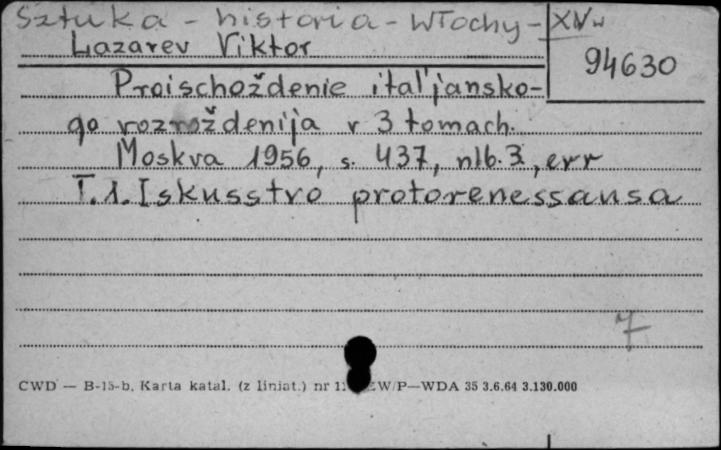 Sztuka - historia - Włochy - XIV w
Lazarev Viktor
94630
Proischoždenie ital'jansko-
go vozroždenija v 3 tomach.
Moskva 1956, s. 437, nlb. 3, err
T. 1. Iskusstvo protorenessansa
7
CWD — B-15-b, Karta katal. (z liniat.) nr EW/P—WDA 35 3.6.64 3.130.000